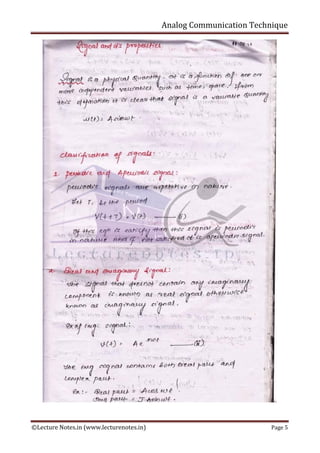 Analog Communication Technique
Signal and its properties
Signal is a physical Quantity. It is a function of one or
more independent variables such as time, space / from
this definition it is clear that signal is a variable quantity
v(t) = A cosωt
Classification of signals:
1. periodic and Aperiodic signal:
periodic signals are repetitive in nature.
Let T, be the period
V(t+T) = V(t) (i)
If this eqn is satisfy then this signal is periodic
in nature and if not satisfied it is aperiodic signal.
LectureNotes.in
2. Real and imaginary signal:
The signal that does not contain any imaginary
component is known as real signal otherwise
known as imaginary signal.
Ex of img: signal:
V(t) = Ae (ii)
The img signal contains both real part and
complex part.
Ex:- Real part = A cos ωt
Img part = J A sin ωt
©Lecture Notes.in (www.lecturenotes.in)
Page 5